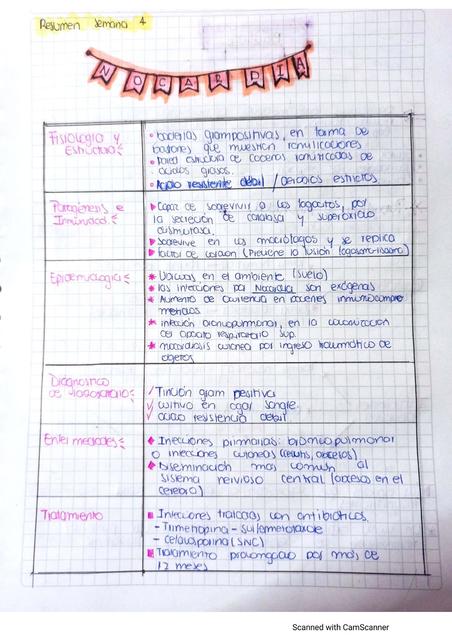 Resumen semana 4
NOCARDIA
Fisiología y
Estructura
bacterias grampositivas, en forma de
bastones que muestran ramificadores
Pared estructura de cadenas ramificadas de
ácidos grasos.
Acido resistente debil / aerobios estrictos.
Patogénesis e
Inmunidad
Capaz de sobrevivir a los fagocitos, por
la secreción de catalasa y superoxido
dismutasa.
Sobrevive en los macrófagos y se replica
factor de cordón (Previene la fusión fagosoma-lisosoma)
Epidemiología
Ubicuas en el ambiente (suelo)
las infecciones por Nocardia son exógenas
Aumento de ocurrencia en pacienes inmunocompro
metidos
infección broncopulmonar, en la colonización
del aparato respiratorio sup.
nocardiosis cutanea por ingreso traumático de
objetos
Diagnostico
de laboratorio
Tinción gram positiva
cultivo en agar sangre
acido resistencia debil
Enfermedades
Infecciones primarias: broncopulmonar
o infecciones cutaneas (celulitis, abscesos)
Diseminación mas comun al
sistema nervioso central (abscesos en el
cerebro)
Tratamiento
Infecciones tratadas con antibióticos.
- Trimetropina - sulfametoxazole
- Cefalosporina (SNC)
Tratamiento prolongado por mas de
12 meses
Scanned with CamScanner